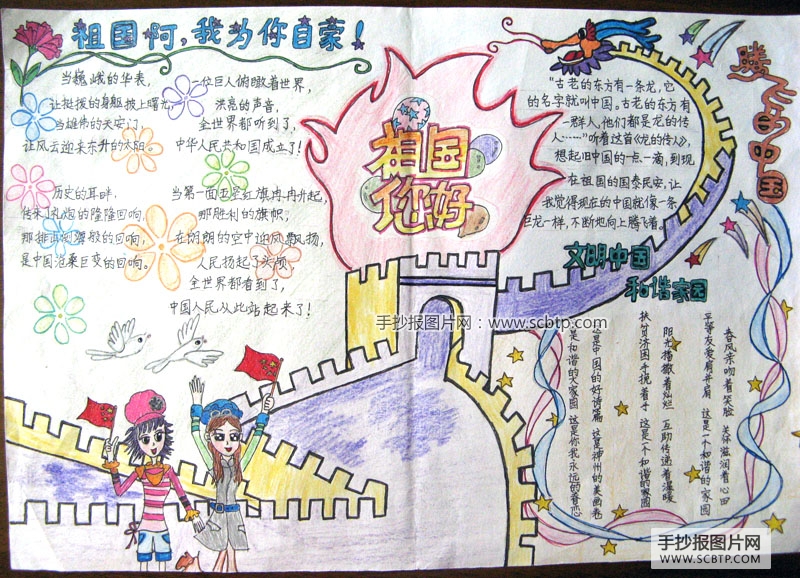 祖国啊,我为你自豪!
当巍峨的华表,
让挺拔的身躯披上曙光,
当雄伟的天安门,
让风云迎来东升的太阳。
历史的耳畔,
传来礼炮的隆隆回响,
那排山倒海般的回响,
是中国沧桑巨变的回响。
一位巨人俯瞰着世界,
洪亮的声音,
全世界都听到了,
中华人民共和国成立了!
当第一面五星红旗冉冉升起,
那胜利的旗帜,
在朗朗的空中迎风飘扬,
人民扬起了头颅,
全世界都看到了,
中国人民从此站起来了!
祖国
您好
腾飞的中国
"古老的东方有一条龙,它
的名字就叫中国。古老的东方有
一群人,他们都是龙的传
人……"听着这首《龙的传人》,
想起旧中国的点一滴,到现
在祖国的国泰民安,让
我觉得现在的中国就像一条
巨龙一样,不断地向上腾飞着。
文明中国
和谐家园
春风亲吻着笑脸 关怀滋润着心田
平等友爱肩并肩 这是一个和谐的家园
阳光播撒着灿烂 互助传递着温暖
扶贫济困手挽着手 这是一个和谐的家园
这是中国的好诗篇 这是神州的美画卷
是和谐的大家园 这是你我永远的眷恋
手抄报图片网:www.scbtp.com
手抄报图片网
WWW.SCBTP.COM